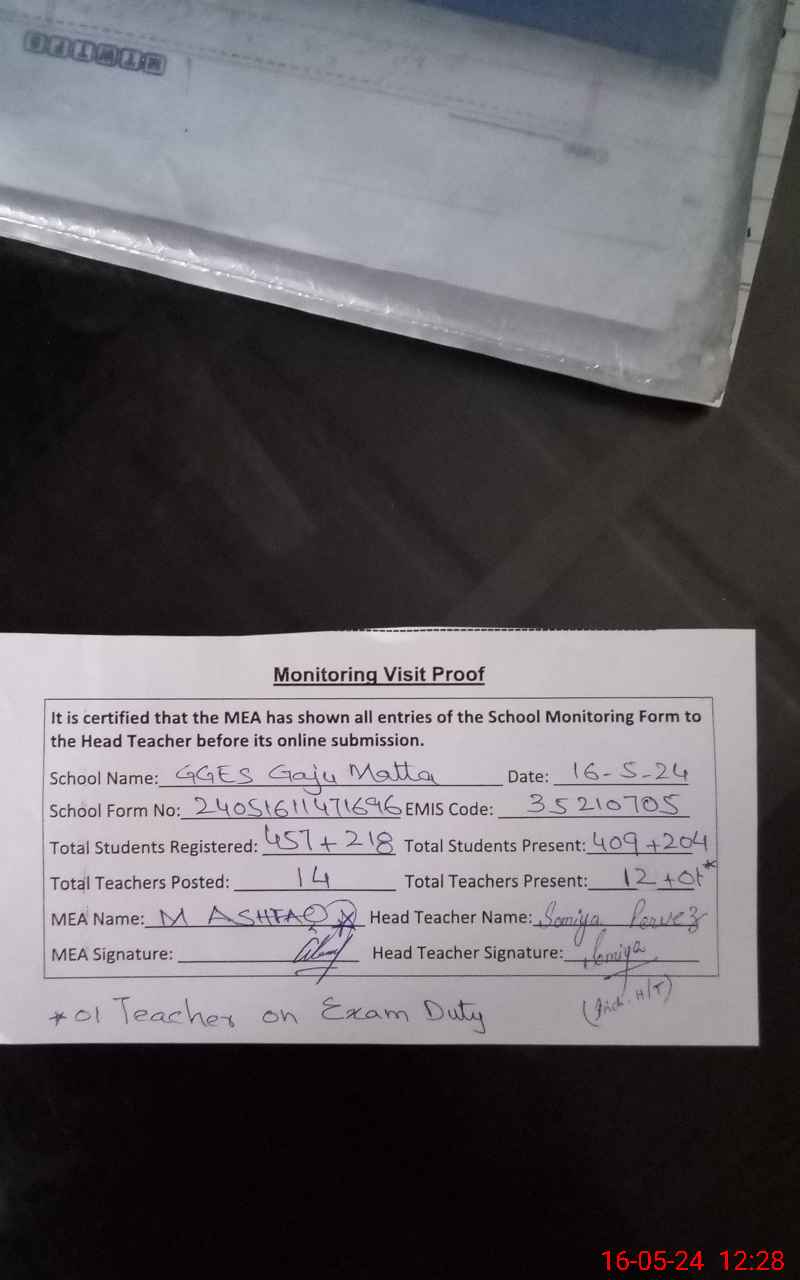 Monitoring Visit Proof
It is certified that the MEA has shown all entries of the School Monitoring Form to
the Head Teacher before its online submission.
School Name: GGES Gaju Matta Date: 16-5-24
School Form No: 24051611471696 EMIS Code: 35210705
Total Students Registered: 457+218 Total Students Present: 409+204
Total Teachers Posted: 14 Total Teachers Present: 12+01*
MEA Name: M ASHFAQ Head Teacher Name: Somiya Pervez
MEA Signature: Head Teacher Signature: Somiya
(Inch. H/T)
*01 Teacher on Exam Duty
16-05-24 12:28